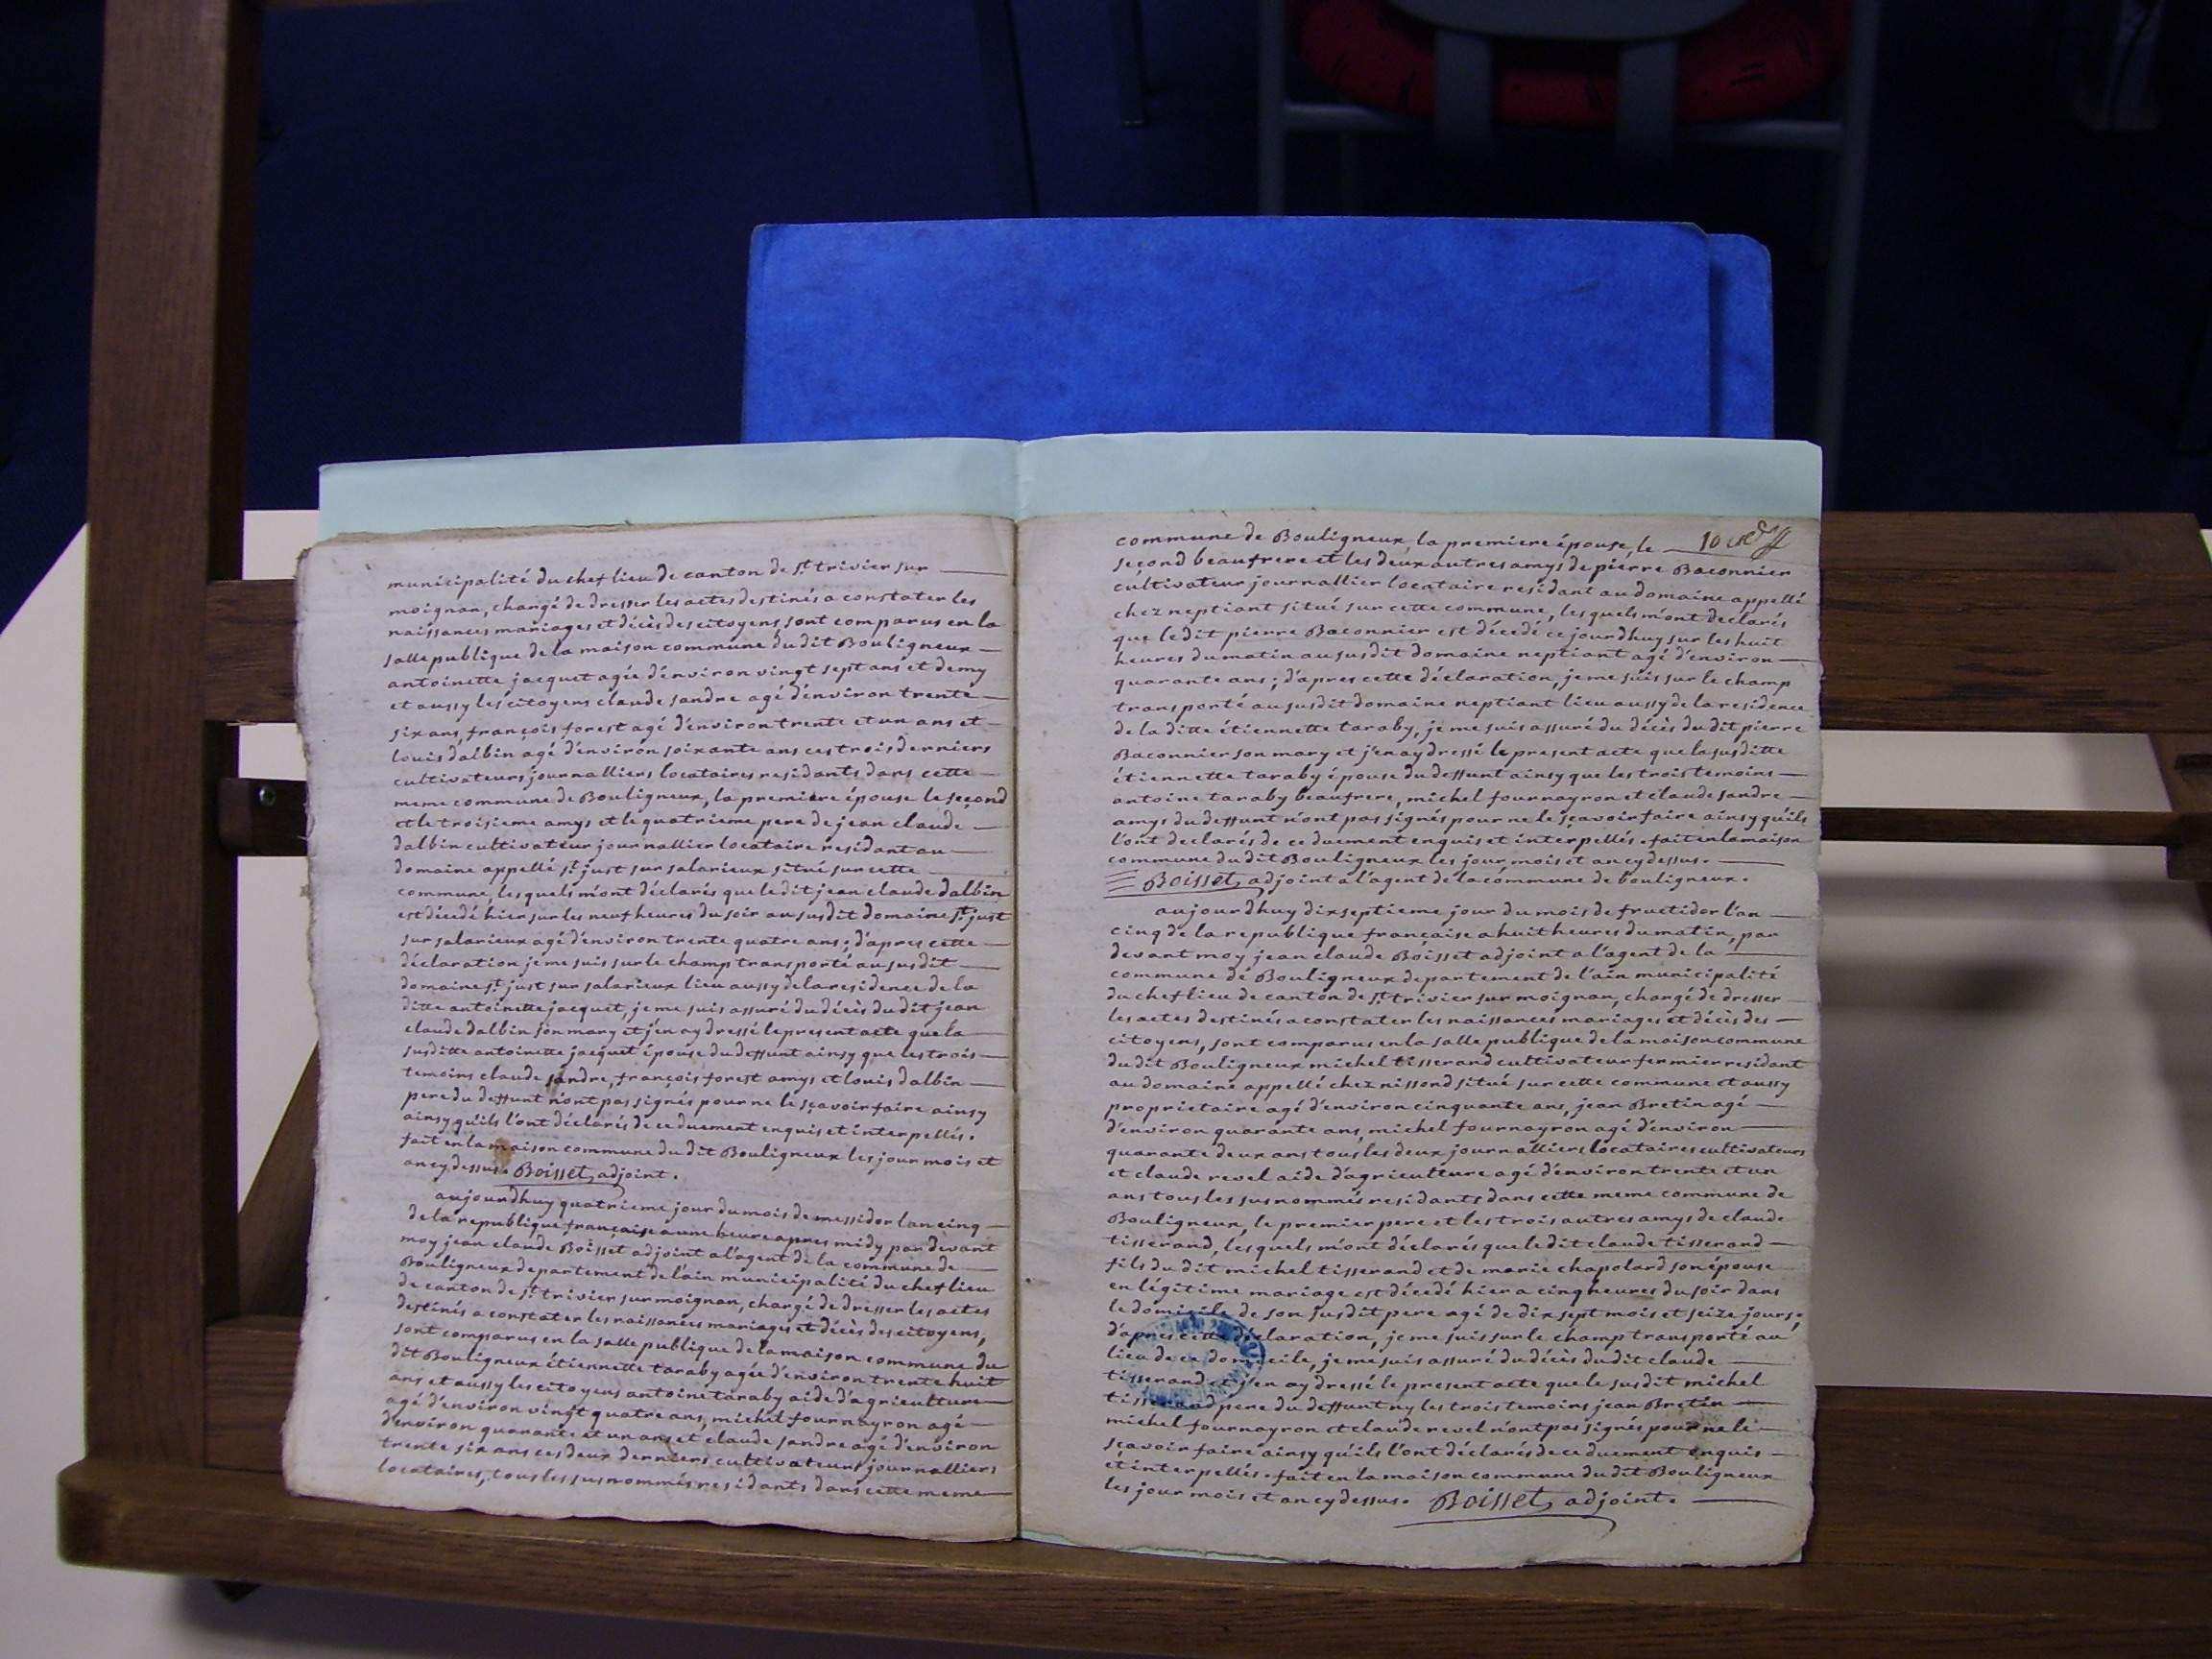 municipalité du chef lieu de canton de st. trivier sur
moignan, chargé de dresser les actes destinés a constater les
naissances mariages et décès des citoyens, sont comparus en la
salle publique de la maison commune du dit Bouligneux
antoinette jacquet agée d'environ vingt sept ans et demy
et aussy les citoyens claude sandre agé d'environ trente
six ans, françois forest agé d'environ trente et un ans et
louis dalbin agé d'environ soixante ans ces trois derniers
cultivateurs journalliers locataires residants dans cette
meme commune de Bouligneux, la premiere épouse le second
et le troisieme amys et le quatrieme pere de jean claude
dalbin cultivateur journallier locataire residant au
domaine appellé st. just sur salarieux situé sur cette
commune, lesquels m'ont déclarés que le dit jean claude dalbin
est décedé hier sur les neuf heures du soir au susdit domaine st. just
sur salarieux agé d'environ trente quatre ans ; d'apres cette
déclaration je me suis sur le champ transporté au susdit
domaine st. just sur salarieux lieu aussy de la residence de la
ditte antoinette jacquet, je me suis assuré du décès du dit jean
claude dalbin son mary et j'en ay dressé le present acte que la
susditte antoinette jacquet épouse du deffunt ainsy que les trois
temoins claude sandre, françois forest amys et louis dalbin
pere du deffunt n'ont pas signés pour ne le sçavoir faire ainsy
ainsy qu'ils l'ont déclarés de ce duement enquis et interpellés.
fait en la maison commune du dit Bouligneux les jour mois et
an cy dessus. Boisset, adjoint.
aujourdhuy quatrieme jour du mois de messidor l'an cinq
de la republique française a une heure apres midy par devant
moy jean claude Boisset adjoint a l'agent de la commune de
Bouligneux departement de l'ain municipalité du chef lieu
de canton de st. trivier sur moignan, chargé de dresser les actes
destinés a constater les naissances mariages et décès des citoyens,
sont comparus en la salle publique de la maison commune du
dit Bouligneux étiennette taraby agée d'environ trente huit
ans et aussy les citoyens antoine taraby aide d'agriculture
agé d'environ vingt quatre ans, michel fournayron agé
d'environ quarante et un ans et claude sandre agé d'environ
trente six ans ces deux derniers cultivateurs journalliers
locataires, tous les sus nommés residants dans cette meme
10
commune de Bouligneux, la premiere épouse, le
second beaufrere et les deux autres amys de pierre Baconnier
cultivateur journallier locataire residant au domaine appellé
chez neptiant situé sur cette commune, lesquels m'ont declarés
que le dit pierre Baconnier est décedé ce jourdhuy sur les huit
heures du matin au susdit domaine neptiant agé d'environ
quarante ans ; d'apres cette déclaration, je me suis sur le champ
transporté au susdit domaine neptiant lieu aussy de la residence
de la ditte étiennette taraby, je me suis assuré du décès du dit pierre
Baconnier son mary et j'en ay dressé le present acte que la susditte
étiennette taraby épouse du deffunt ainsy que les trois temoins
antoine taraby beaufrere, michel fournayron et claude sandre
amys du deffunt n'ont pas signés pour ne le sçavoir faire ainsy qu'ils
l'ont declarés de ce duement enquis et interpellés. fait en la maison
commune du dit Bouligneux les jour mois et an cy dessus.
Boisset, adjoint a l'agent de la commune de bouligneux.
aujourdhuy dixseptieme jour du mois de fructidor l'an
cinq de la republique française a huit heures du matin, par
devant moy jean claude Boisset adjoint a l'agent de la
commune de Bouligneux departement de l'ain municipalité
du chef lieu de canton de st. trivier sur moignan, chargé de dresser
les actes destinés a constater les naissances mariages et décès des
citoyens, sont comparus en la salle publique de la maison commune
du dit Bouligneux michel tisserand cultivateur fermier residant
au domaine appellé chez nissond situé sur cette commune et aussy
proprietaire agé d'environ cinquante ans, jean Bretin agé
d'environ quarante ans, michel fournayron agé d'environ
quarante deux ans tous les deux journalliers locataires cultivateurs
et claude revel aide d'agriculture agé d'environ trente et un
ans tous les susnommés residants dans cette meme commune de
Bouligneux, le premier pere et les trois autres amys de claude
tisserand, lesquels m'ont déclarés que le dit claude tisserand
fils du dit michel tisserand et de marie chapolard son épouse
en légitime mariage est décedé hier a cinq heures du soir dans
le domicile de son susdit pere agé de dix sept mois et seize jours ;
d'apres cette déclaration, je me suis sur le champ transporté au
lieu de ce domicile, je me suis assuré du décès du dit claude
tisserand et j'en ay dressé le present acte que le susdit michel
tisserand pere du deffunt ny les trois temoins jean Bretin
michel fournayron et claude revel n'ont pas signés pour ne le
sçavoir faire ainsy qu'ils l'ont déclarés de ce duement enquis
et interpellés. fait en la maison commune du dit Bouligneux
les jour mois et an cy dessus. Boisset, adjoint.